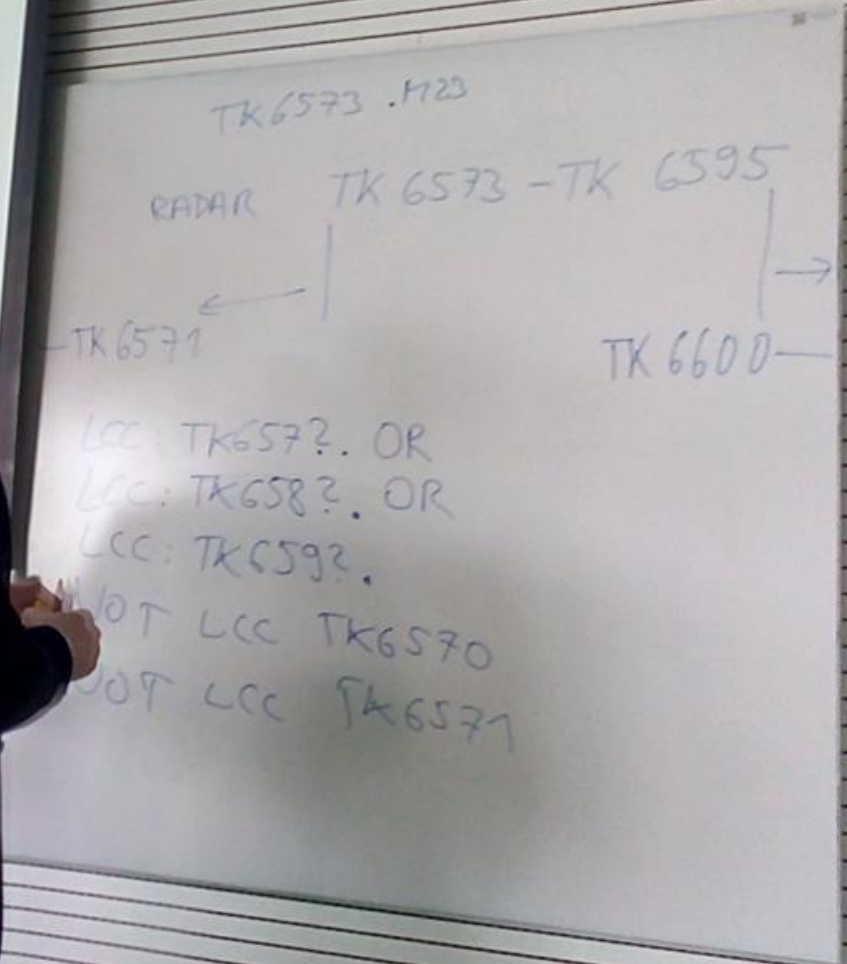 TK6573 .M23
RADAR TK 6573 - TK 6595
TK6571
TK 6600
LCC: TK657?. OR
LCC: TK658?. OR
LCC: TK659?.
NOT LCC TK6570
NOT LCC TK6571